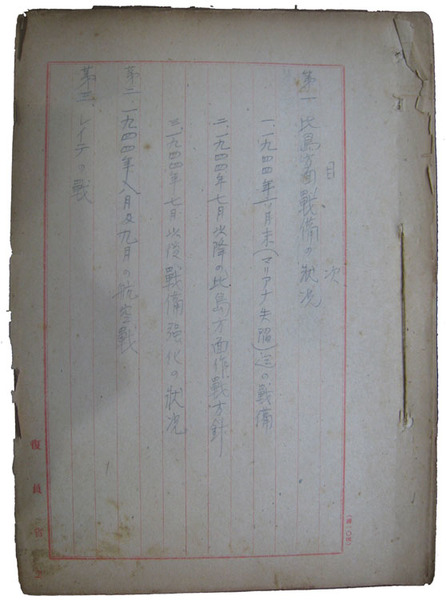 目次
第一 比島方面戦備の状況
一、一九四四年六月末(マリアナ失陥)迄の戦備
二、一九四四年七月以降の比島方面作戦方針
三、一九四四年七月以後戦備強化の状況
第二 一九四四年八月及九月の航空戦
第三 レイテの戦
復員省